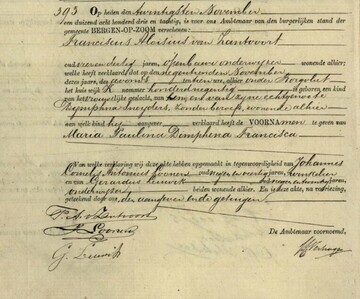 393 Op heden den twintigsten November
een duizend acht honderd drie en tachtig, is voor ons Ambtenaar van den burgerlijken stand der
gemeente BERGEN-OP-ZOOM verschenen:
Franciscus Aloisius van Zantvoort
oud vierendertig jaren, openbaar onderwijzer wonende alhier;
welke heeft verklaard dat op den negentienden November
dezes jaars, des avonds ten tien ure, alhier onder Borgvliet
in het huis wijk K nummer honderdnegentig is geboren een kind
van het vrouwelijke geslacht, van hem en van zijne echtgenoote
Nymphna Snijders, zonder beroep, wonende alhier
aan welk kind hij verklaard heeft de VOORNAMEN te geven van
Maria Paulina Dimphena Francisca
En van welke verklaring wij deze akte hebben opgemaakt in tegenwoordigheid van Johannes
Cornelis Antonius Loonen oud negenenveertig jaren, winkelier
en van Gerardus Leuwik oud negenentwintig jaren,
onderwijzer beiden wonende alhier. En is deze akte, na voorlezing,
geteekend door ons, den aangever en de getuigen.
F. A. v. Zantvoort
De Ambtenaar voornoemd,
Loonen
G. Leuwik